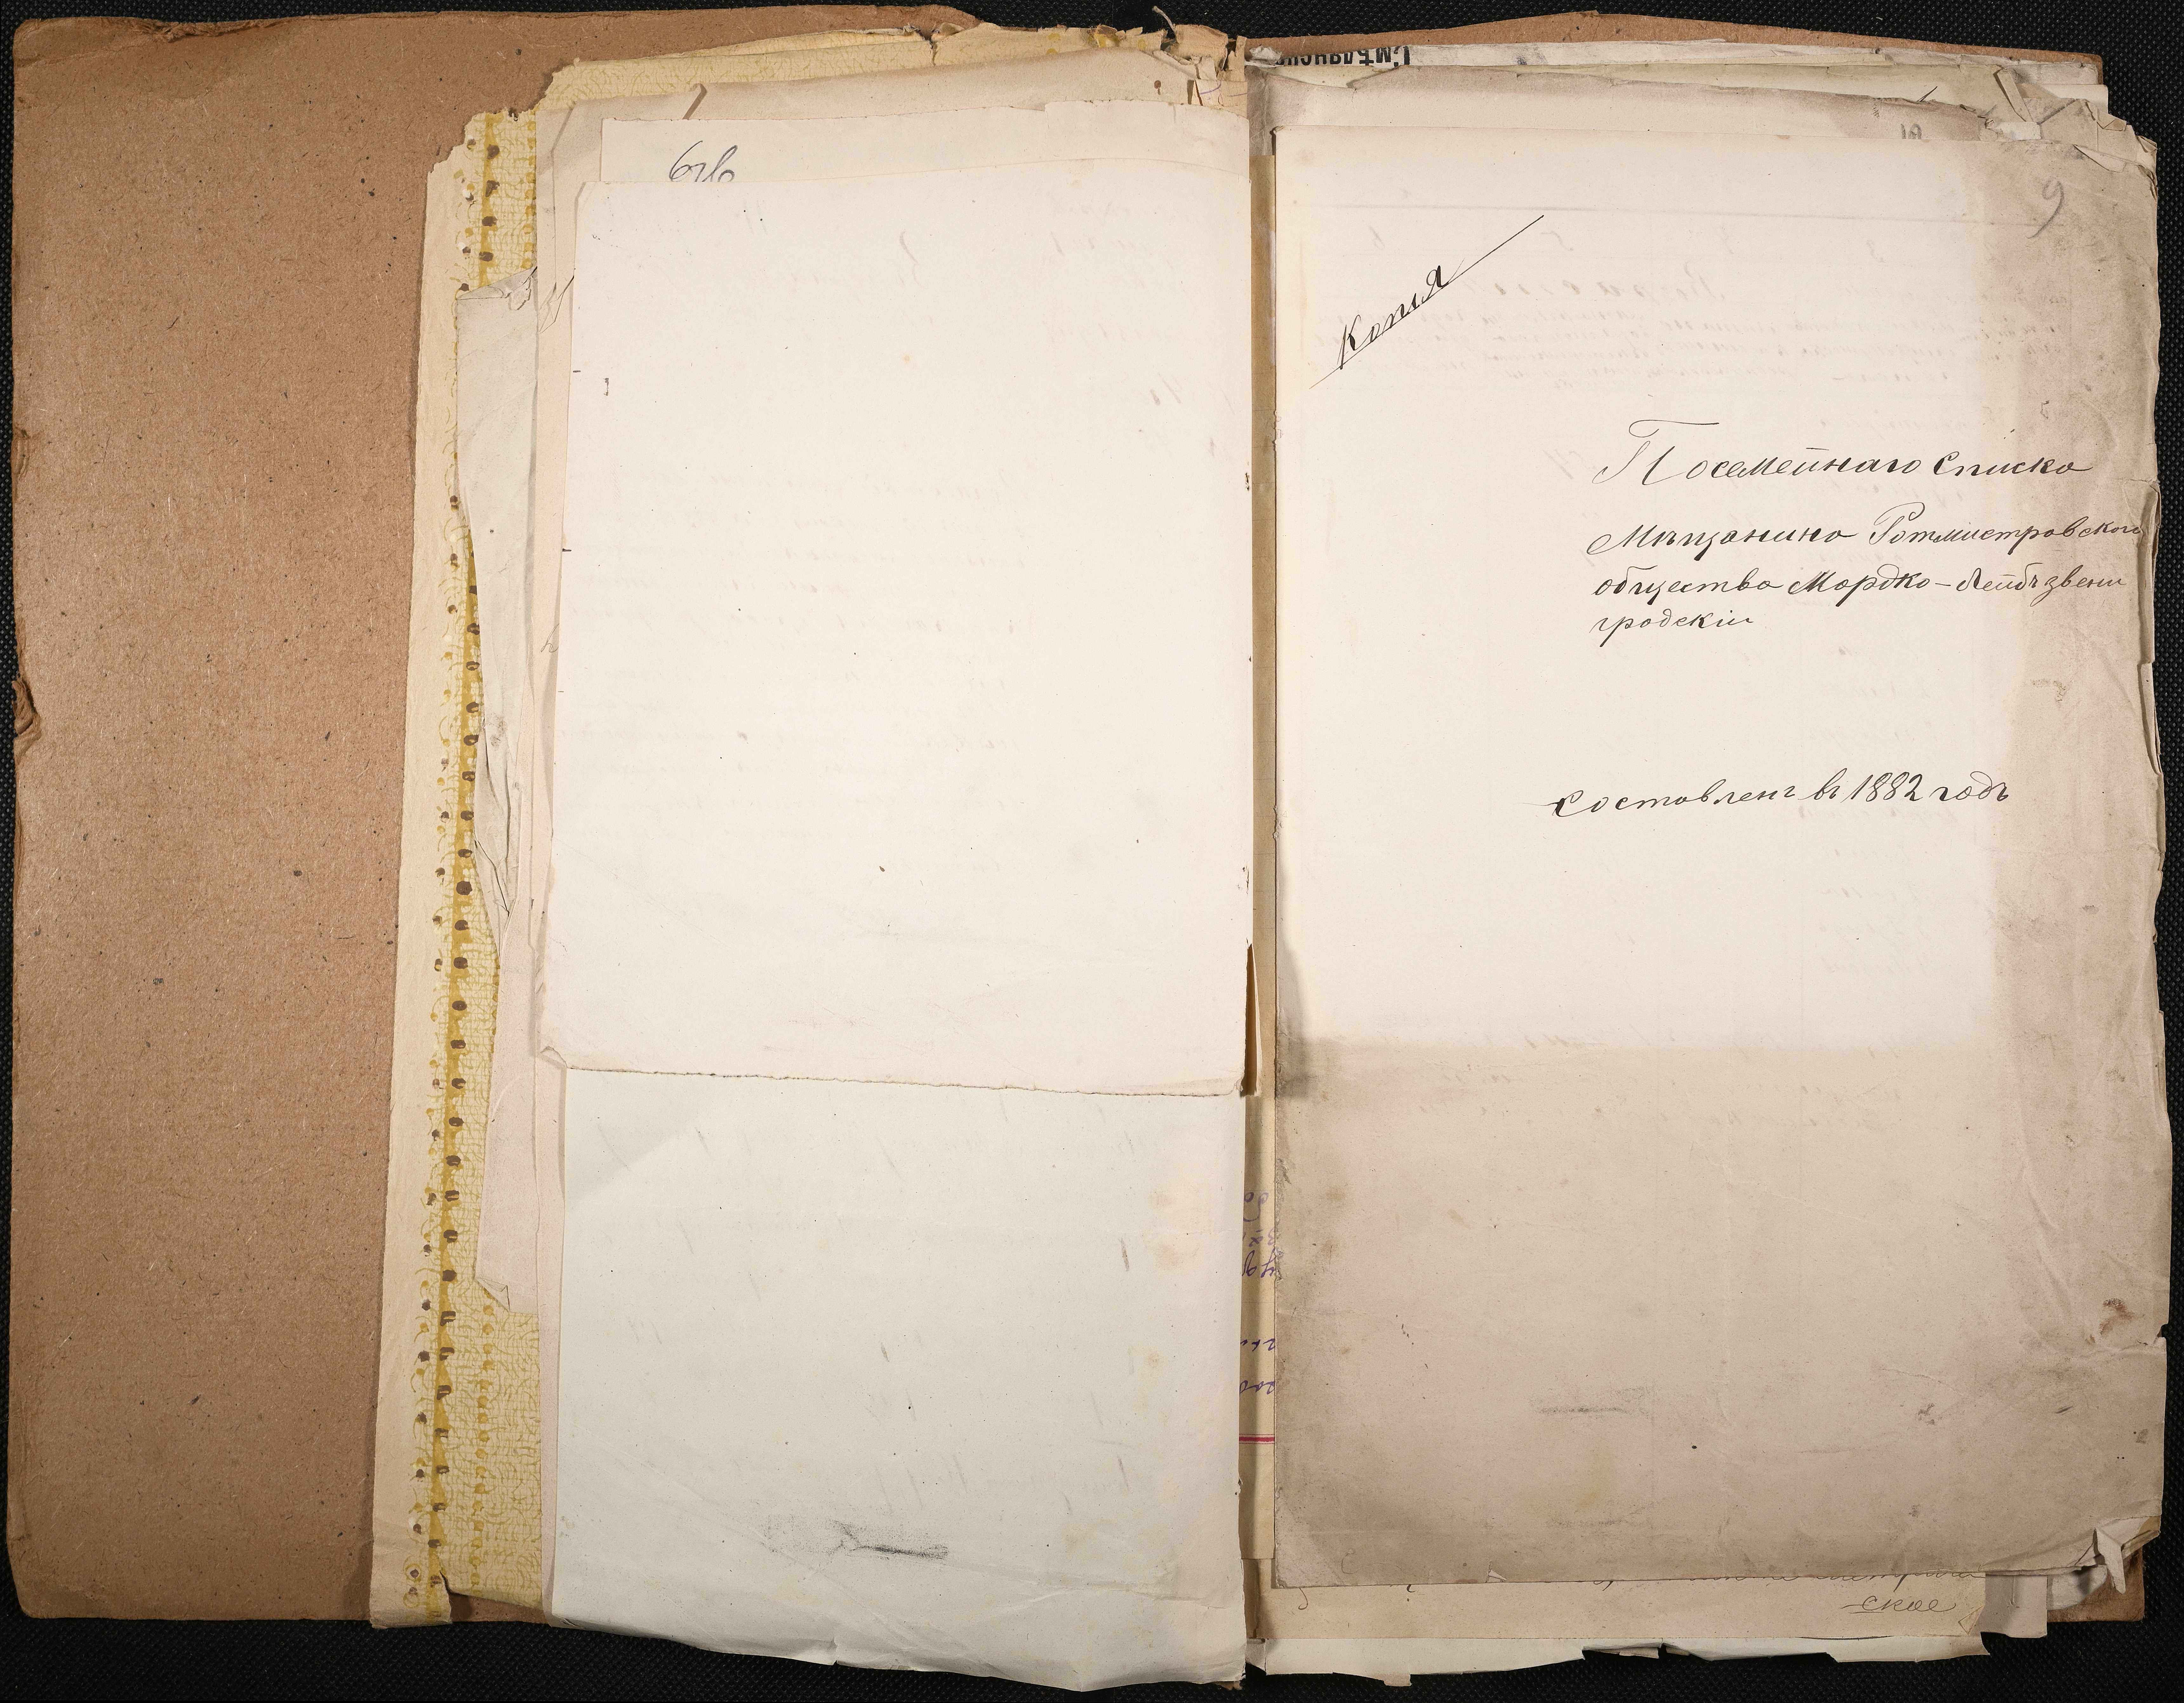 66
9
Копия
Посемейнаго Списка
Мѣщанина Ротмистровского
общества Мордко-Лейбъ Звени
городскій
Составленъ въ 1882 годѣ
ское